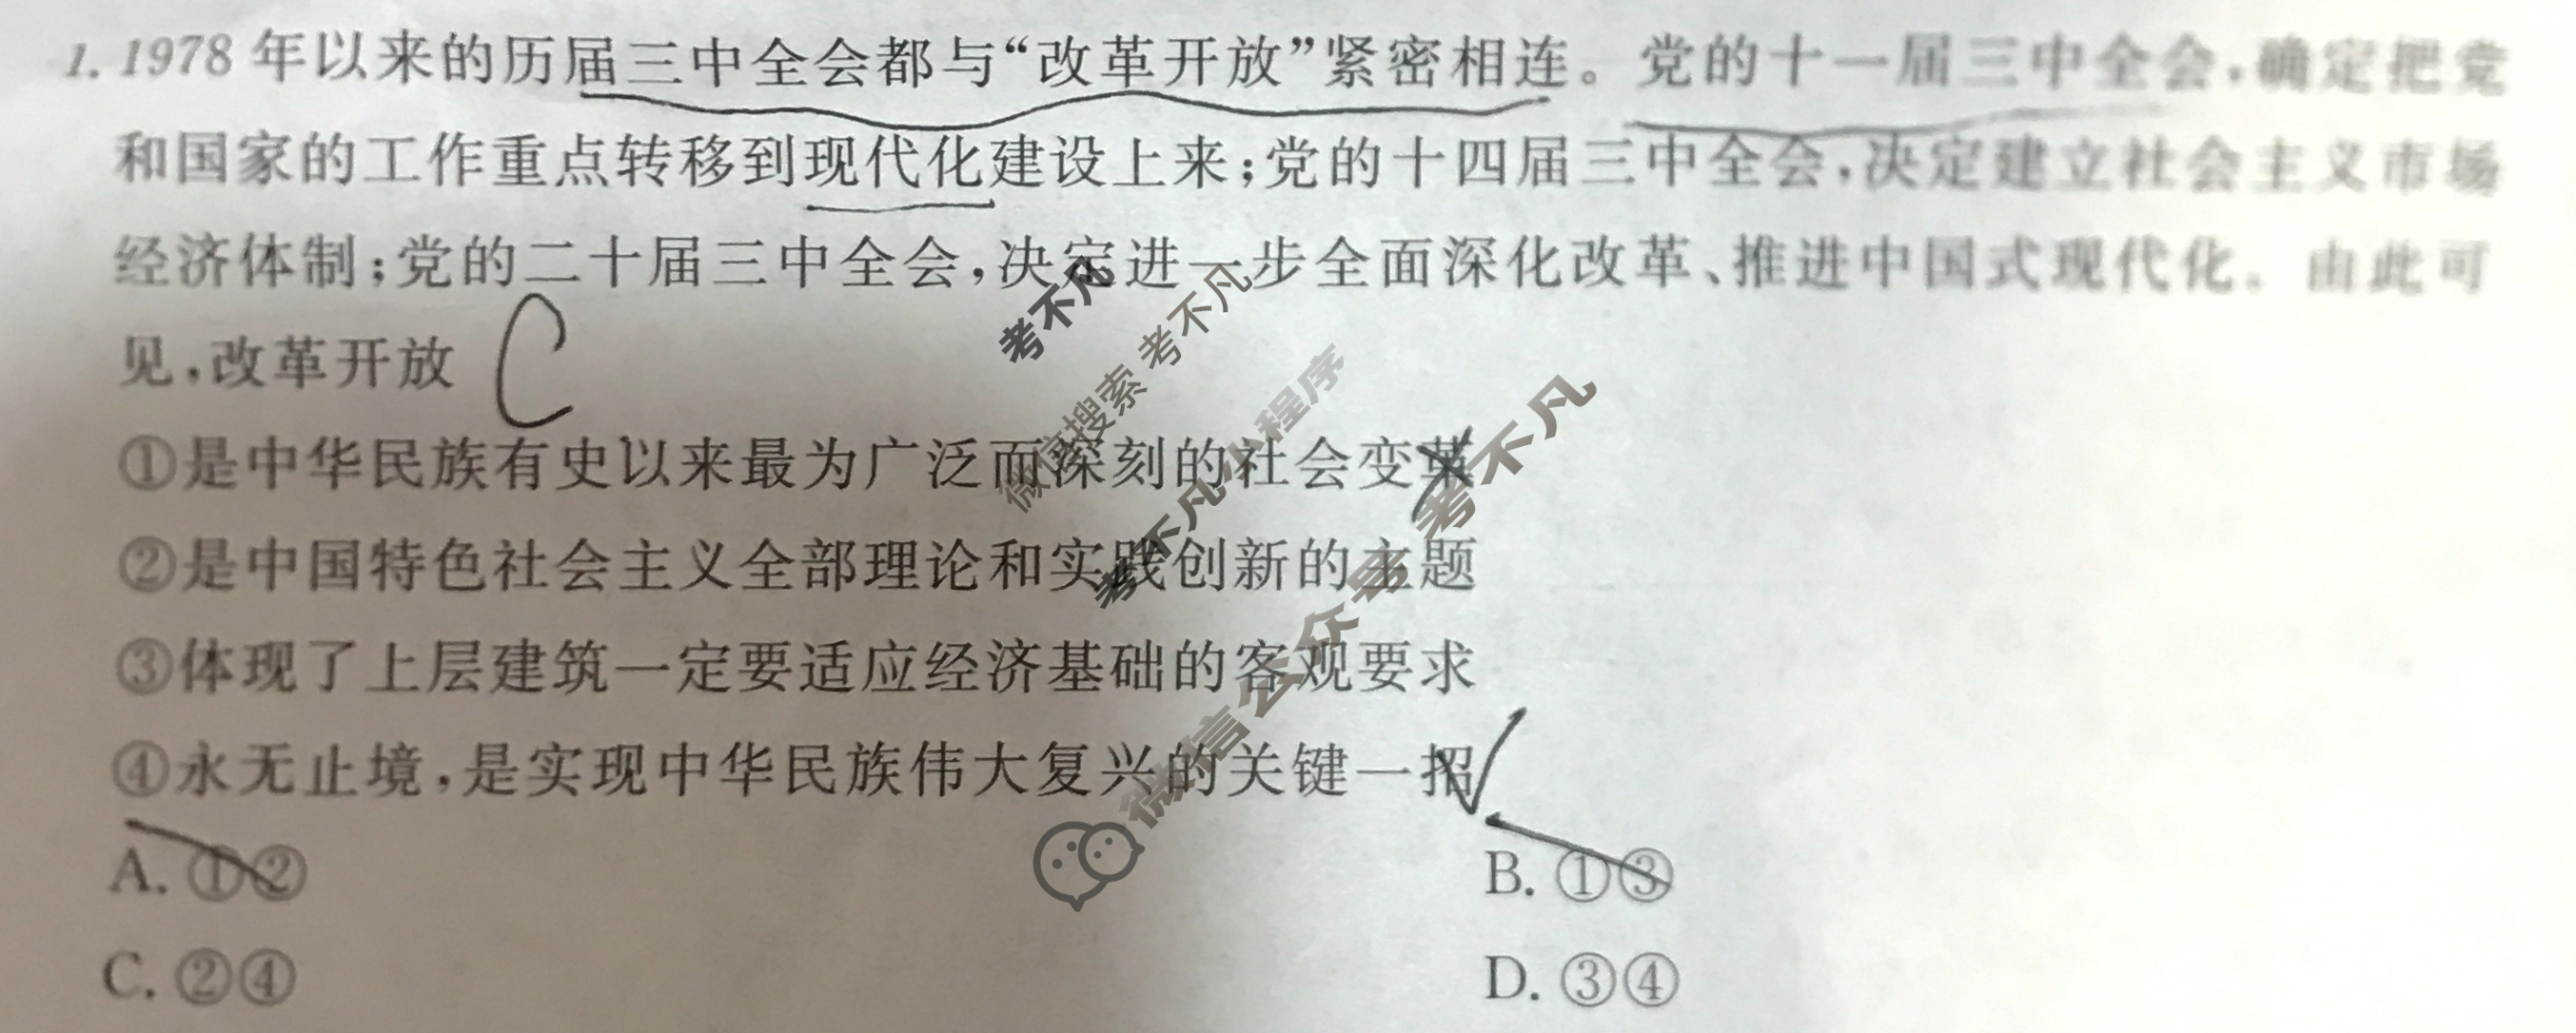 1. 1978 年以来的历届三中全会都与“改革开放”紧密相连。党的十一届三中全会，确定把党
和国家的工作重点转移到现代化建设上来；党的十四届三中全会，决定建立社会主义市场
经济体制；党的二十届三中全会，决定进一步全面深化改革、推进中国式现代化。由此可
见，改革开放 C
①是中华民族有史以来最为广泛而深刻的社会变革
②是中国特色社会主义全部理论和实践创新的主题
③体现了上层建筑一定要适应经济基础的客观要求
④永无止境，是实现中华民族伟大复兴的关键一招
A. ①② B. ①③
C. ②④ D. ③④
考不凡
微信搜索 考不凡
考不凡小程序
微信公众号 考不凡